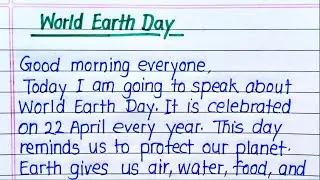 World Earth Day
Good morning everyone,
Today I am going to speak about
World Earth Day. It is celebrated
on 22 April every year. This day
reminds us to protect our planet.
Earth gives us air, water, food, and